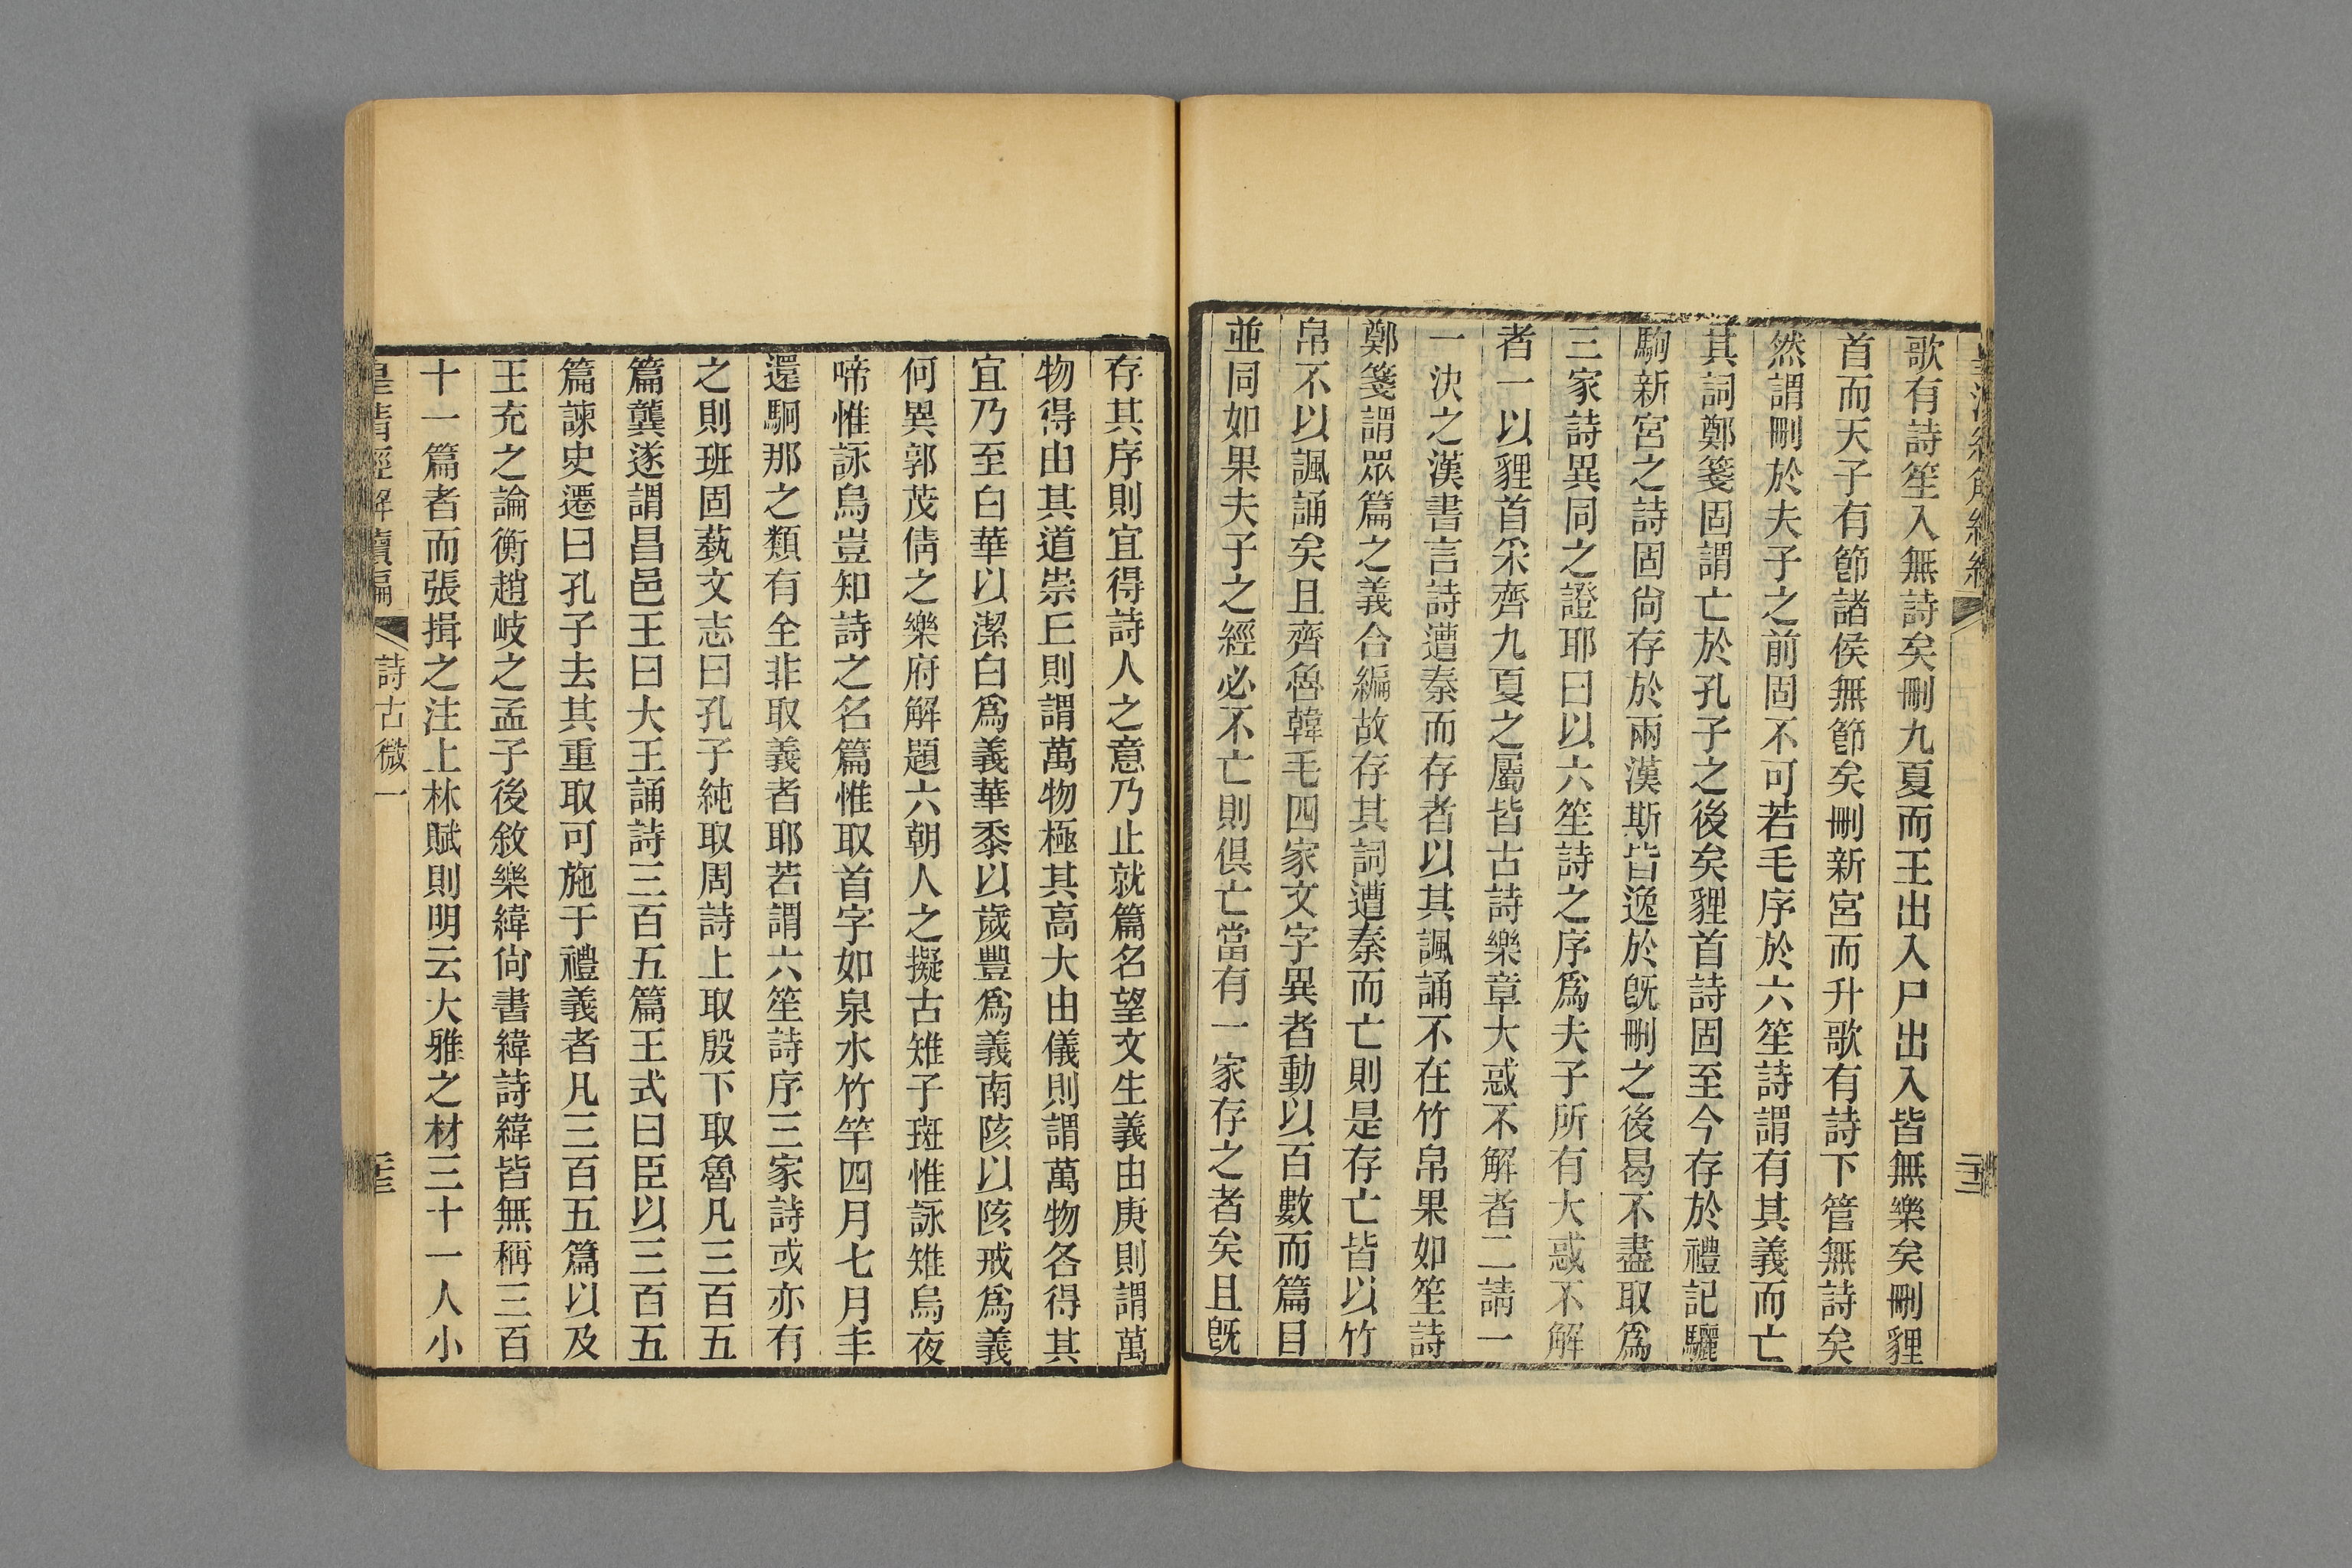 歌有詩笙入無詩矣刪九夏而王出入尸出入皆無樂矣刪貍
首而天子有節諸侯無節矣刪新宮而升歌有詩下管無詩矣
然謂刪於夫子之前固不可若毛序於六笙詩謂有其義而亡
其詞鄭箋固謂亡於孔子之後矣貍首詩固至今存於禮記驪
駒新宮之詩固尙存於兩漢斯皆逸於旣刪之後曷不盡取爲
三家詩異同之證耶曰以六笙詩之序爲夫子所有大惑不解
者一以貍首釆齊九夏之屬皆古詩樂章大惑不解者二請一
一決之漢書言詩遭秦而存者以其諷誦不在竹帛果如笙詩
鄭箋謂眾篇之義合編故存其詞遭秦而亡則是存亡皆以竹
帛不以諷誦矣且齊魯韓毛四家文字異者動以百數而篇目
並同如果夫子之經必不亡則俱亡當有一家存之者矣且旣
存其序則宜得詩人之意乃止就篇名望文生義由庚則謂萬
物得由其道崇丘則謂萬物極其高大由儀則謂萬物各得其
宜乃至白華以潔白爲義華黍以歲豐爲義南陔以陔戒爲義
何異郭茂倩之樂府解題六朝人之擬古雉子斑惟詠雉烏夜
啼惟詠烏豈知詩之名篇惟取首字如泉水竹竿四月七月丰
還駉那之類有全非取義者耶若謂六笙詩序三家詩或亦有
之則班固蓺文志曰孔子純取周詩上取殷下取魯凡三百五
篇龔遂謂昌邑王曰大王誦詩三百五篇王式曰臣以三百五
篇諫史遷曰孔子去其重取可施于禮義者凡三百五篇以及
王充之論衡趙岐之孟子後敘樂緯尙書緯詩緯皆無稱三百
十一篇者而張揖之注上林賦則明云大雅之材三十一人小
皇清經解續編
詩古微一